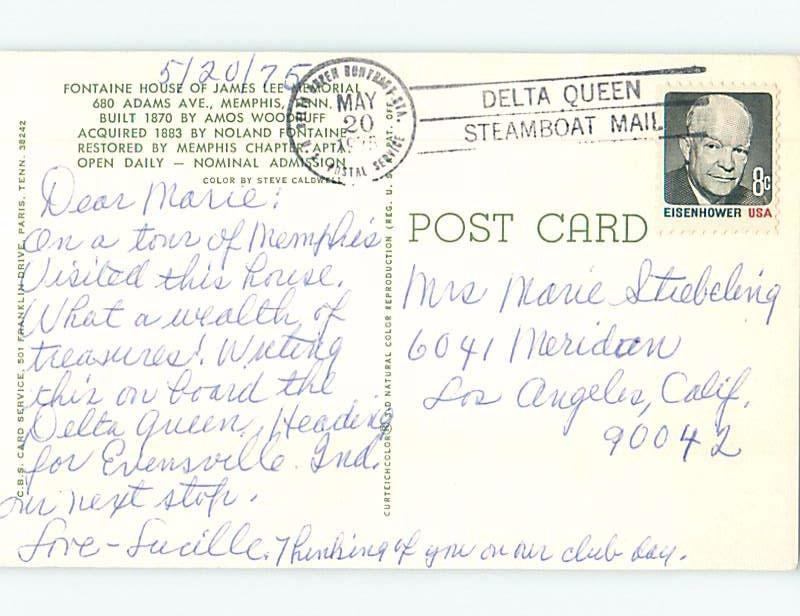 5/20/75
FONTAINE HOUSE OF JAMES LEE MEMORIAL
680 ADAMS AVE., MEMPHIS, TENN.
BUILT 1870 BY AMOS WOODRUFF
ACQUIRED 1883 BY NOLAND FONTAINE
RESTORED BY MEMPHIS CHAPTER, APTA
OPEN DAILY — NOMINAL ADMISSION
COLOR BY STEVE CALDWELL
Dear Marie:
On a tour of Memphis
Visited this house.
What a wealth of
treasures! Writing
this on board the
Delta Queen. Heading
for Evensville Ind.
our next stop.
Love - Lucille. Thinking of you on our club day.
C.B.S. CARD SERVICE, 501 FRANKLIN DRIVE, PARIS, TENN. 38242
CURTEICHCOLOR® 3-D NATURAL COLOR REPRODUCTION (REG. U.S. PAT. OFF.
MAY
20
1975
POSTAL SERVICE
DELTA QUEEN
STEAMBOAT MAIL
8c
EISENHOWER USA
POST CARD
Mrs Marie Stiebeling
6041 Meridian
Los Angeles, Calif.
90042